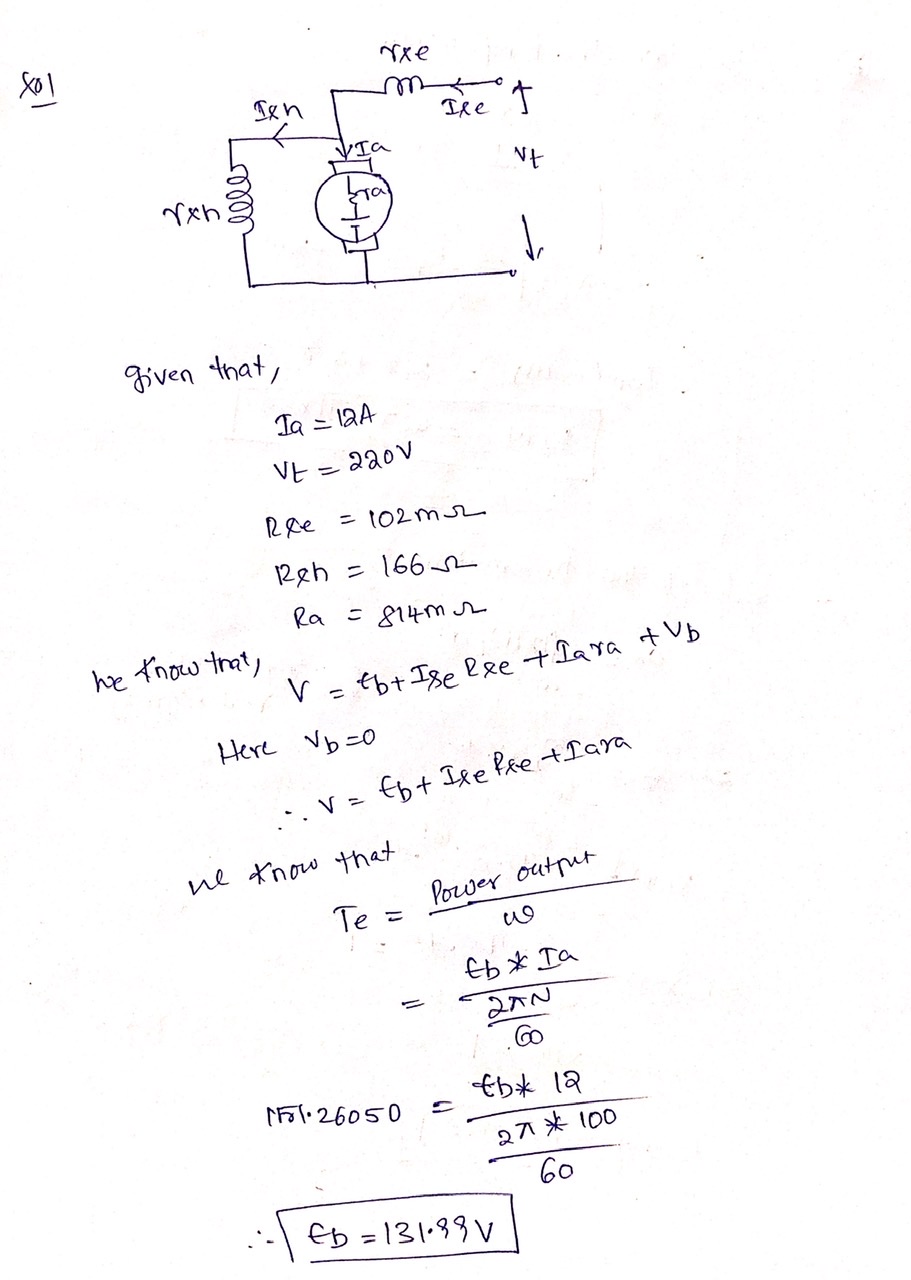 Sol
rse
Ish
Ise
Ia
Vt
ra
rsh
given that,
Ia = 12A
Vt = 220V
Rse = 102mΩ
Rsh = 166Ω
Ra = 814mΩ
We know that,
V = Eb + Ise Rse + Iara + Vb
Here Vb=0
∴ V = Eb + Ise Rse + Iara
we know that
Te = Power output / ω
= Eb * Ia / 2πN / 60
151.26050 = Eb * 12 / 2π * 100 / 60
∴ Eb = 131.99V